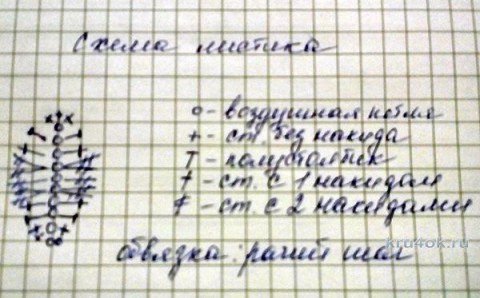 Схема листика
о - воздушная петля
+ - ст. без накида
Т - полустолбик
† - ст. с 1 накидом
‡ - ст. с 2 накидами
обвязка: рачий шаг
kru4ok.ru